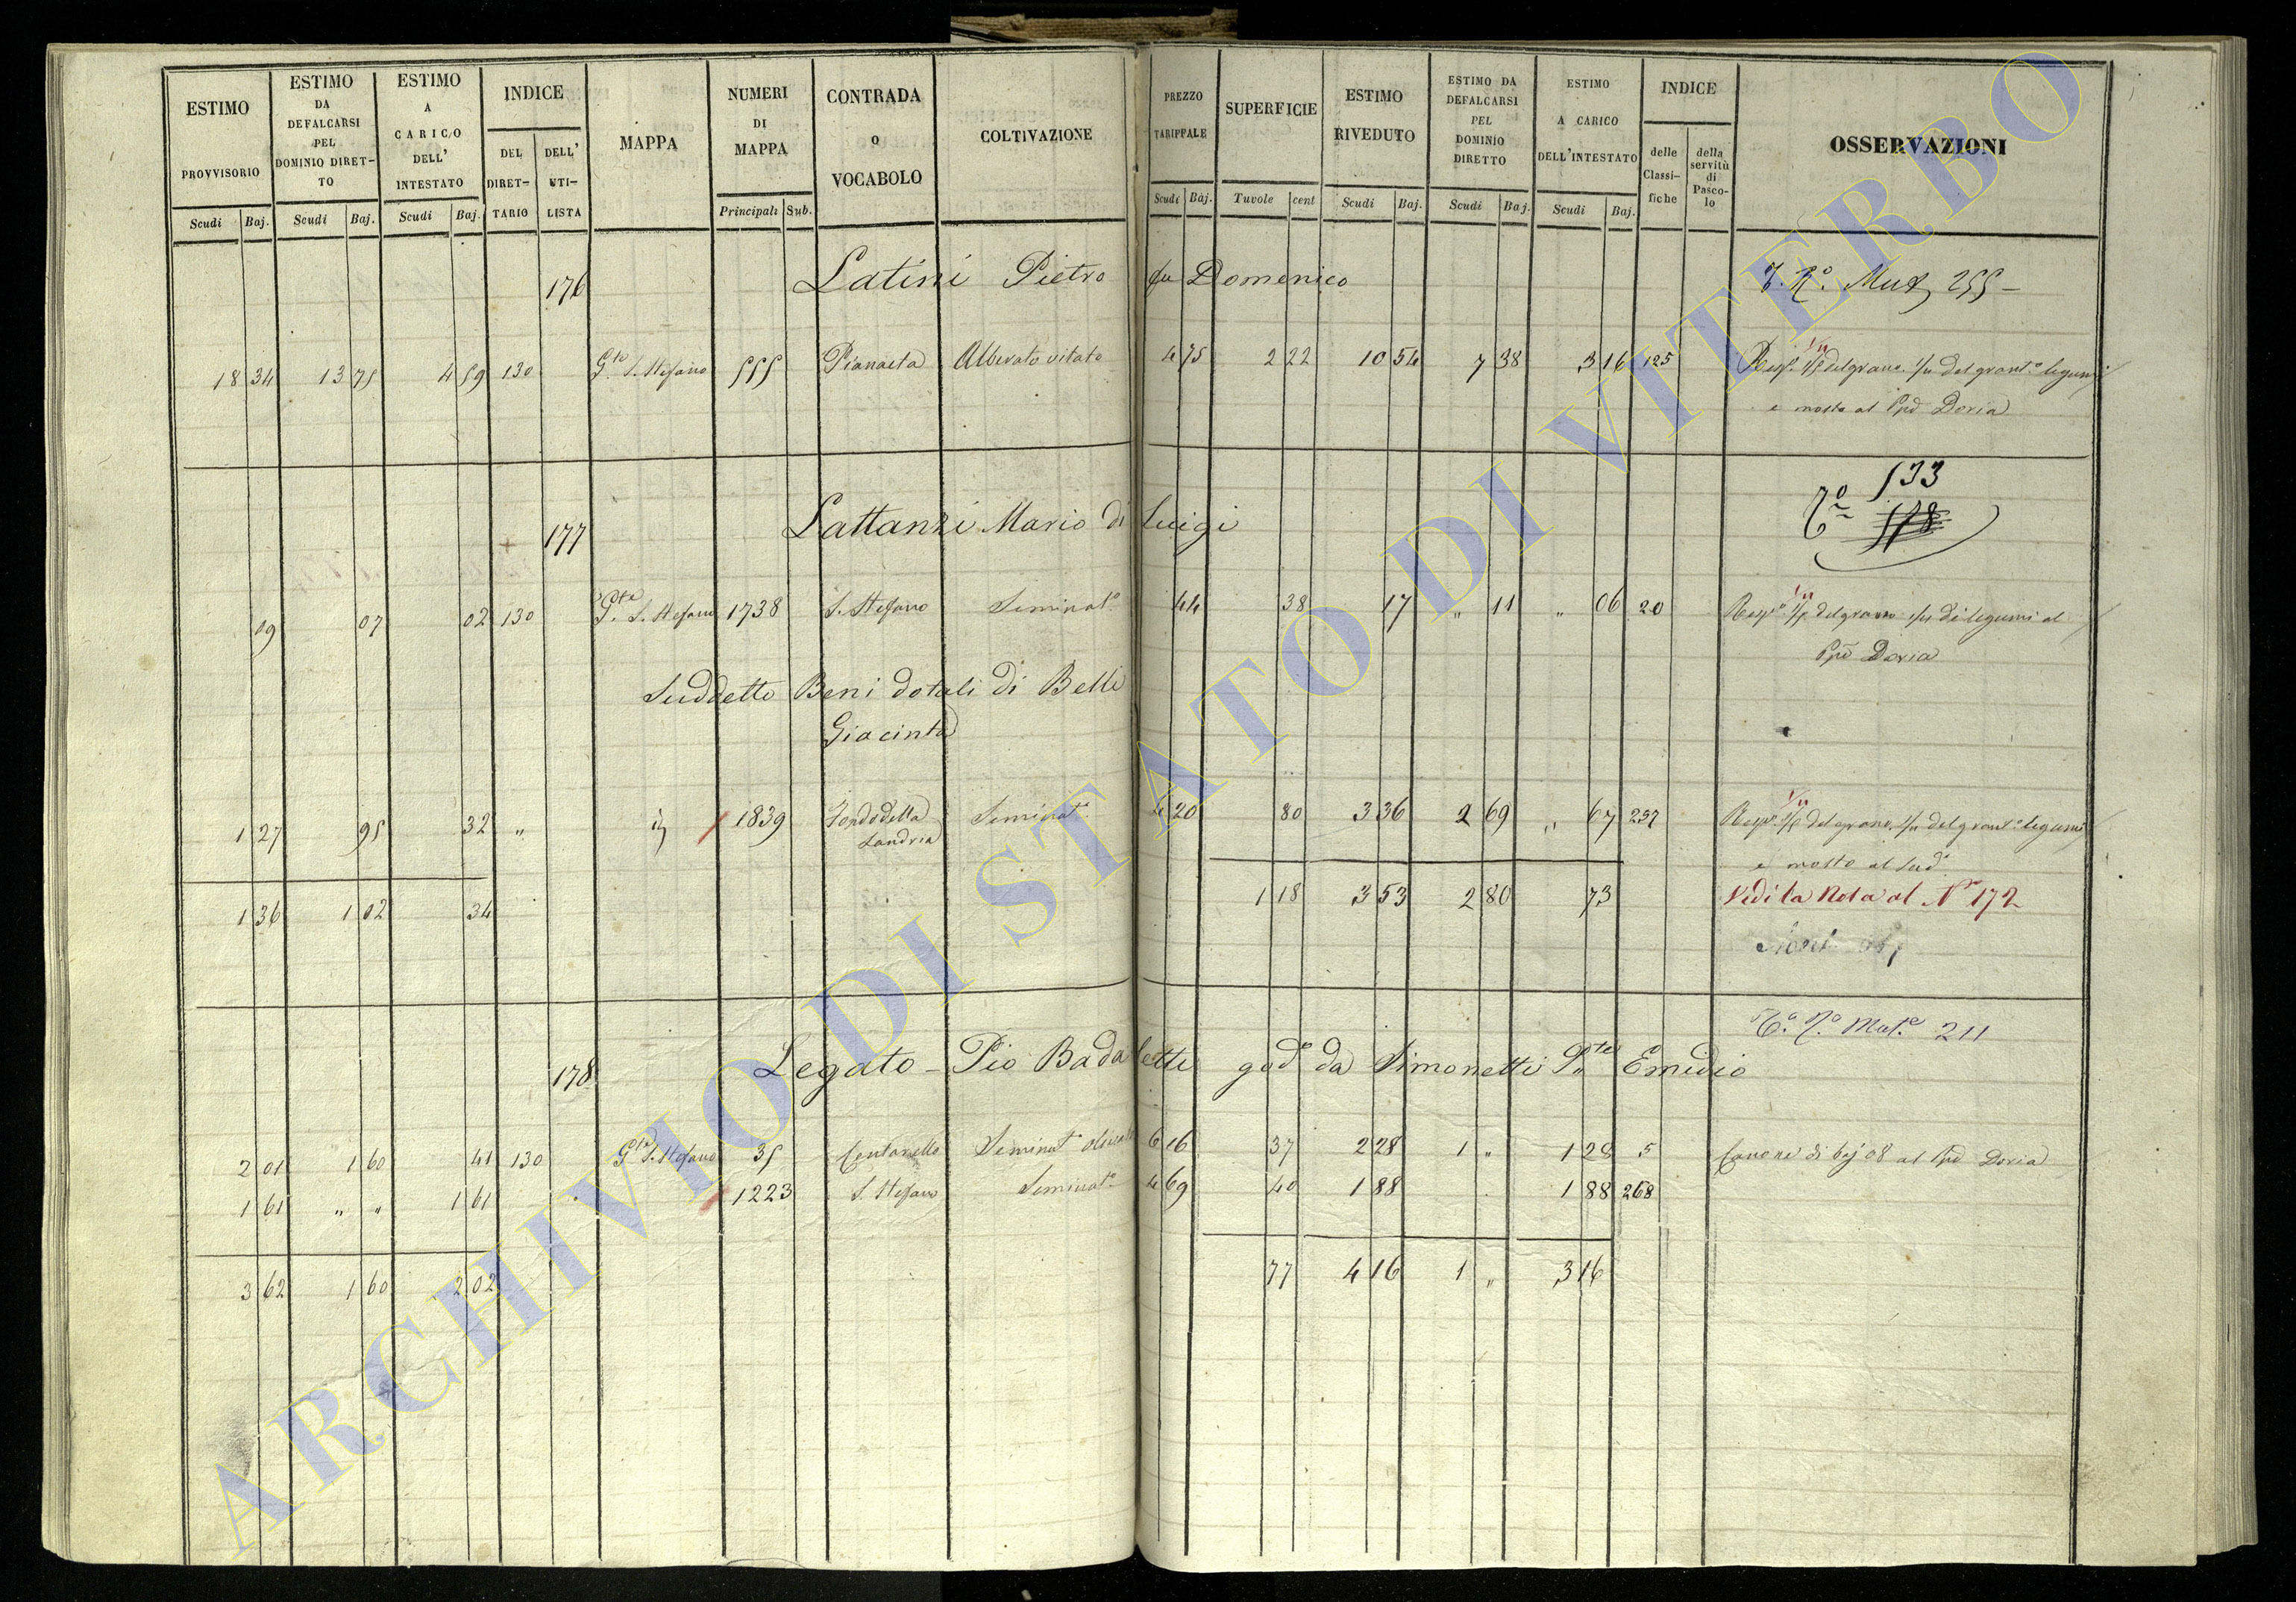 ESTIMO PROVVISORIO
Scudi Baj.
ESTIMO DA DEFALCARSI PEL DOMINIO DIRET-TO
Scudi Baj.
ESTIMO A CARICO DELL' INTESTATO
Scudi Baj.
INDICE
DEL DIRET-TARIO
DELL' UTI-LISTA
MAPPA
NUMERI DI MAPPA
Principali Sub.
CONTRADA o VOCABOLO
COLTIVAZIONE
PREZZO TARIFFALE
Scudi Baj.
SUPERFICIE
Tavole cent
ESTIMO RIVEDUTO
Scudi Baj.
ESTIMO DA DEFALCARSI PEL DOMINIO DIRETTO
Scudi Baj.
ESTIMO A CARICO DELL'INTESTATO
Scudi Baj.
INDICE
delle Classi-fiche
della servitù di Pasco-lo
OSSERVAZIONI
176 Latini Pietro fu Domenico 255
18 34 13 75 4 59 130 Gte S. Stefano 555 Pianaeta Alberato vitato 4 75 2 22 10 54 7 38 3 16 125 del grano del grant.o legumi
e mosto al Ppe Doria
533
177 Lattanzi Mario di Luigi
09 07 02 130 Gte S. Stefano 1738 S. Stefano Seminato 44 38 17 " 11 " 06 20 del grano di legumi al
Ppe Doria
Suddetto Beni dotali di Belli
Giacinta
1 27 95 32 " 1839 Fondo della Seminat.o 4 20 80 3 36 2 69 " 67 237 del grano del grant.o legumi
Landria e mosto al Sud.o
1 36 1 02 34 1 18 3 53 2 80 73 Vedi la Nota al N° 172
Mut.e 211
178 Legato Pio Badaletti god.o da Simonetti P.te Emidio
2 01 1 60 41 130 Gte S. Stefano 35 Cantarello Seminat.o olivato 6 16 37 2 28 1 " 1 28 5 Canone di baj 08 al Ppe Doria
1 61 " " 1 61 1223 S. Stefano Seminat.o 4 69 40 1 88 1 88 268
3 62 1 60 2 02 77 4 16 1 " 3 16
ARCHIVIO DI STATO DI VITERBO